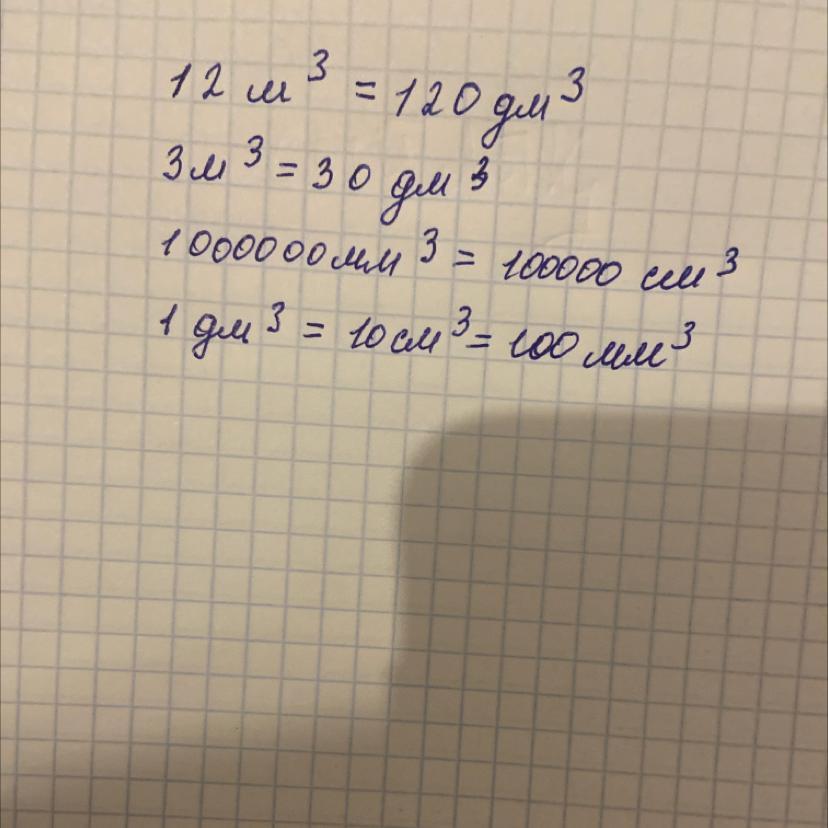 12 м³ = 120 дм³
3м³ = 30 дм³
1000000мм³ = 100000 см³
1 дм³ = 10см³ = 100 мм³